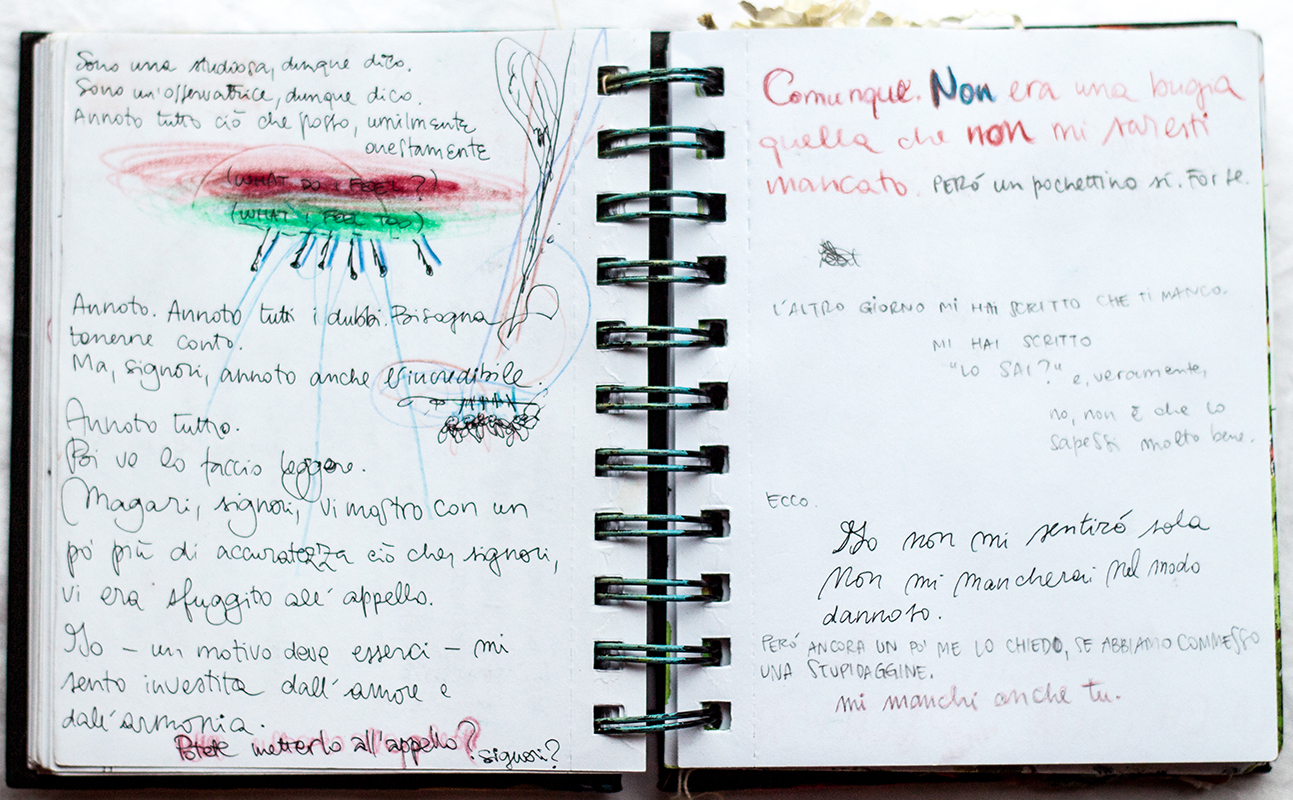 Sono una studiosa, dunque dico.
Sono un'osservatrice, dunque dico.
Annoto tutto ciò che posso, umilmente
onestamente
(WHAT DO I FEEL?)
(WHAT I FEEL TOO)
Annoto. Annoto tutti i dubbi. Bisogna
tenerne conto.
Ma, signori, annoto anche l'incredibile.
Annoto tutto.
Poi ve lo faccio leggere.
(Magari, signori, vi mostro con un
pò più di accuratezza ciò che, signori,
vi era sfuggito all'appello.
Io – un motivo deve esserci – mi
sento investita dall'amore e
dall'armonia.
Potete metterlo all'appello?
signori?
Comunque. Non era una bugia
quella che non mi saresti
mancato. PERÓ un pochettino sì. Forse.
L'ALTRO GIORNO MI HAI SCRITTO CHE TI MANCO.
MI HAI SCRITTO
"LO SAI?" e, veramente,
no, non è che lo
sapessi molto bene.
ECCO.
Io non mi sentiró sola
Non mi mancherai nel modo
dannoso.
PERÓ ANCORA UN PO' ME LO CHIEDO, SE ABBIAMO COMMESSO
UNA STUPIDAGGINE.
mi manchi anche tu.